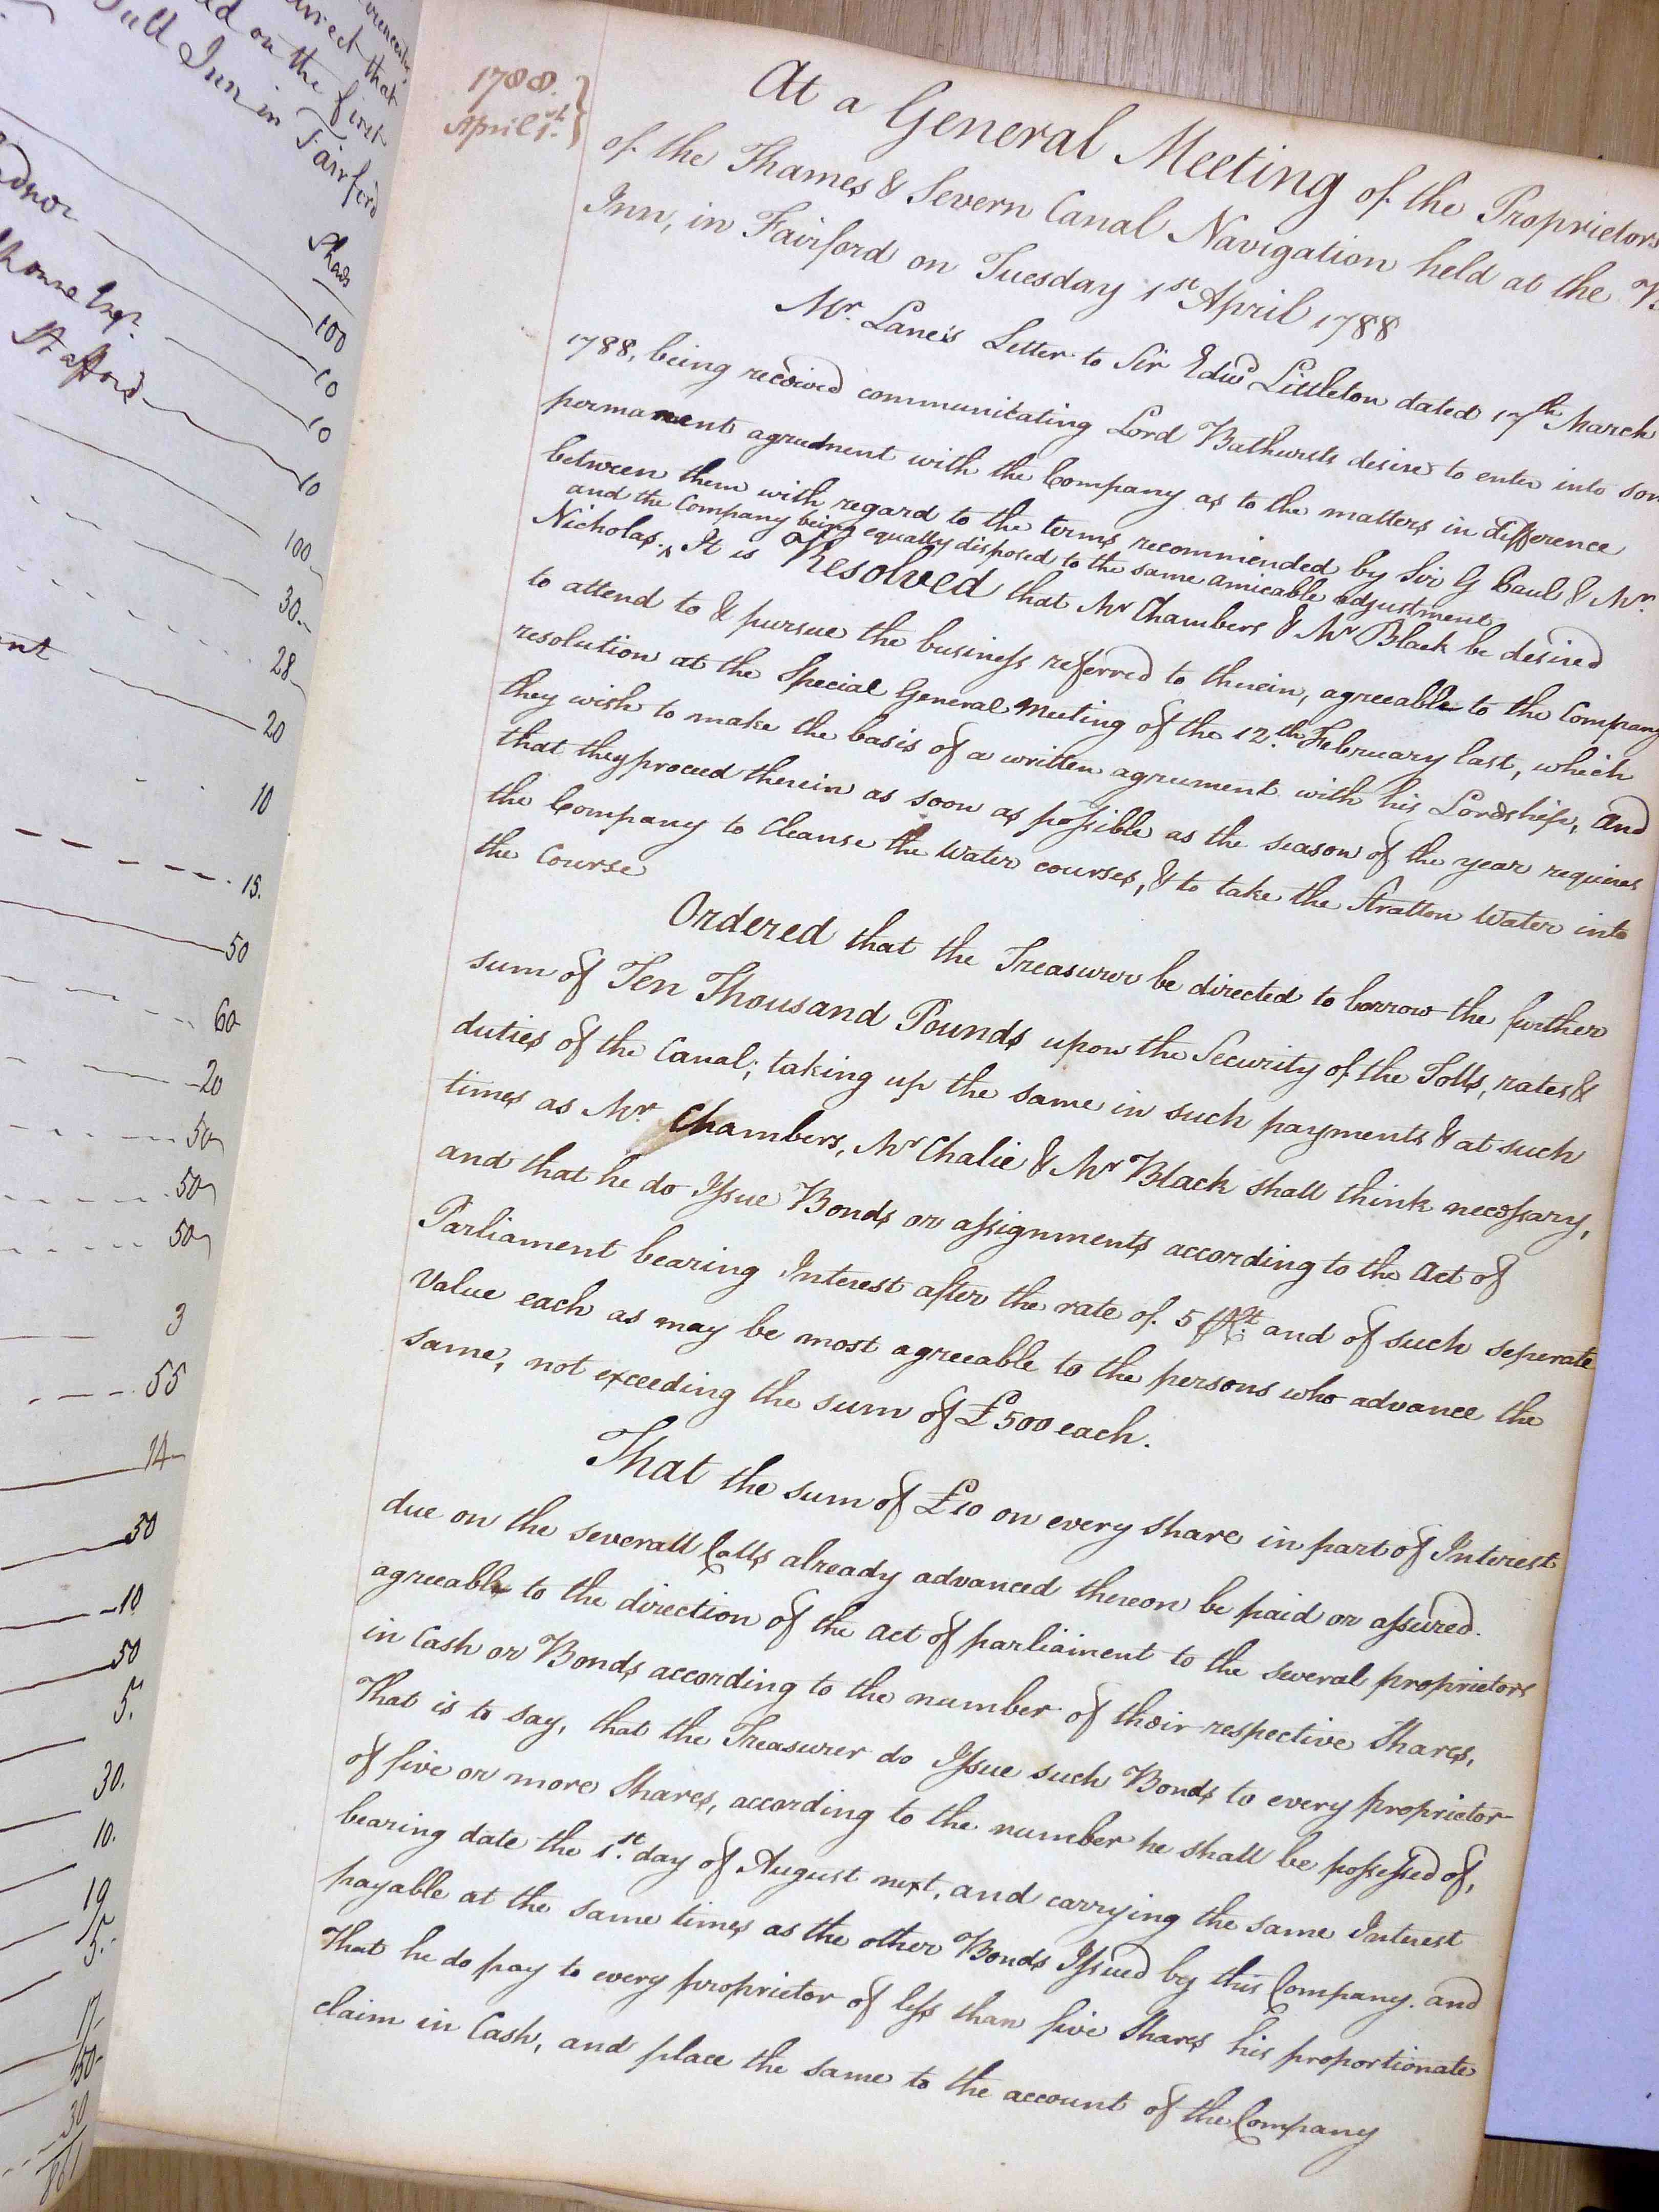 direct that
ed on the first
Bull Inn in Fairford
Shares
100
10
10
Stafford 10
100
30
28
20
10
15.
50
60
20
50
50
50
3
55
14
30
10
50
5.
30.
10.
19
5.
17
50
30
861
1788.
April 1st.
At a General Meeting of the Proprietors
of the Thames & Severn Canal Navigation held at the
Inn, in Fairford on Tuesday 1st April 1788
Mr. Lane's Letter to Sir Edwd Littleton dated 17th March
1788, being received communicating Lord Bathursts desire to enter into some
permanent agreement with the Company as to the matters in difference
between them with regard to the terms recommended by Sir G Paul & Mr.
and the Company being equally disposed to the same amicable adjustment
Nicholas. ^ It is Resolved that Mr Chambers & Mr Black be desired
to attend to & pursue the business referred to therein, agreeable to the Company
resolution at the Special General Meeting of the 12th February last, which
they wish to make the basis of a written agreement with his Lordship, and
that they proceed therein as soon as possible as the season of the year requires
the Company to Cleanse the Water courses, & to take the Stratton Water into
the Course
Ordered that the Treasurer be directed to borrow the further
sum of Ten Thousand Pounds upon the Security of the Tolls, rates &
duties of the Canal; taking up the same in such payments & at such
times as Mr. Chambers, Mr Chalie & Mr Black shall think necessary,
and that he do Issue Bonds or assignments according to the Act of
Parliament bearing Interest after the rate of 5 PCt. and of such seperate
Value each as may be most agreeable to the persons who advance the
same, not exceeding the sum of £500 each.
That the sum of £10 on every share in part of Interest
due on the severall Calls already advanced thereon be paid or assured.
agreeable to the direction of the act of parliament to the several proprietors
in Cash or Bonds according to the number of their respective Shares,
That is to say, that the Treasurer do Issue such Bonds to every proprietor
of five or more Shares, according to the number he shall be possessed of,
bearing date the 1st. day of August next, and carrying the same Interest
payable at the same times as the other Bonds Issued by this Company. and
That he do pay to every proprietor of less than five Shares his proportionate
claim in Cash, and place the same to the account of the Company